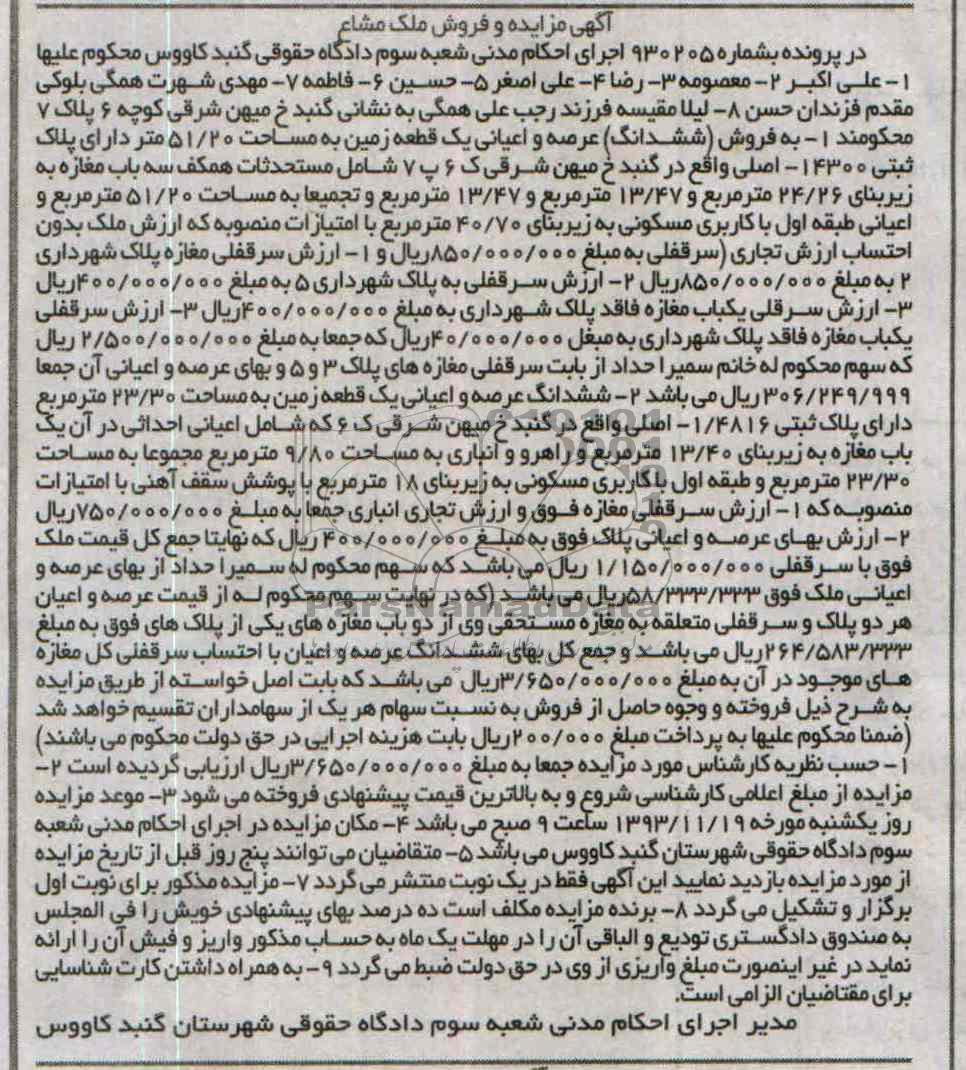 آگهی مزایده و فروش ملک مشاع
در پرونده بشماره ۹۳۰۲۰۵ اجرای احکام مدنی شعبه سوم دادگاه حقوقی گنبد کاووس محکوم علیها
۱- علی اکبر ۲- معصومه ۳- رضا ۴- علی اصغر ۵- حسین ۶- فاطمه ۷- مهدی شهرت همگی بلوکی
مقدم فزندان حسن ۸- لیلا مقیسه فرزند رجب علی همگی به نشانی گنبد خ میهن شرقی کوچه ۶ پلاک ۷
محکومند ۱- به فروش (ششدانگ) عرصه و اعیانی یک قطعه زمین به مساحت ۵۱/۲۰ متر دارای پلاک
ثبتی ۱۴۳۰۰- اصلی واقع در گنبد خ میهن شرقی ک ۶ پ ۷ شامل مستحدثات همکف سه باب مغازه به
زیربنای ۲۴/۲۶ مترمربع و ۱۳/۴۷ مترمربع و ۱۳/۴۷ مترمربع و تجمیعا به مساحت ۵۱/۲۰ مترمربع و
اعیانی طبقه اول با کاربری مسکونی به زیربنای ۴۰/۷۰ مترمربع با امتیازات منصوبه که ارزش ملک بدون
احتساب ارزش تجاری (سرقفلی به مبلغ ۸۵۰/۰۰۰/۰۰۰ریال و ۱- ارزش سرقفلی مغازه پلاک شهرداری
۲ به مبلغ ۸۵۰/۰۰۰/۰۰۰ریال ۲- ارزش سرقفلی به پلاک شهرداری ۵ به مبلغ ۴۰۰/۰۰۰/۰۰۰ریال
۳- ارزش سرقلی یکباب مغازه فاقد پلاک شهرداری به مبلغ ۴۰۰/۰۰۰/۰۰۰ریال ۳- ارزش سرقفلی
یکباب مغازه فاقد پلاک شهرداری به مبغل ۴۰/۰۰۰/۰۰۰ریال که جمعا به مبلغ ۲/۵۰۰/۰۰۰/۰۰۰ ریال
که سهم محکوم له خانم سمیرا حداد از بابت سرقفلی مغازه های پلاک ۳ و ۵ و بهای عرصه و اعیانی آن جمعا
۳۰۶/۲۴۹/۹۹۹ ریال می باشد ۲- ششدانگ عرصه و اعیانی یک قطعه زمین به مساحت ۲۳/۳۰ مترمربع
دارای پلاک ثبتی ۱/۴۸۱۶- اصلی واقع در گنبد خ میهن شرقی ک ۶ که شامل اعیانی احداثی در آن یک
باب مغازه به زیربنای ۱۳/۴۰ مترمربع و راهرو و انباری به مساحت ۹/۸۰ مترمربع مجموعا به مساحت
۲۳/۳۰ مترمربع و طبقه اول با کاربری مسکونی به زیربنای ۱۸ مترمربع با پوشش سقف آهنی با امتیازات
منصوبه که ۱- ارزش سرقفلی مغازه فوق و ارزش تجاری انباری جمعا به مبلغ ۷۵۰/۰۰۰/۰۰۰ریال
۲- ارزش بهای عرصه و اعیانی پلاک فوق به مبلغ ۴۰۰/۰۰۰/۰۰۰ ریال که نهایتا جمع کل قیمت ملک
فوق با سرقفلی ۱/۱۵۰/۰۰۰/۰۰۰ ریال می باشد که سهم محکوم له سمیرا حداد از بهای عرصه و
اعیانی ملک فوق ۵۸/۳۳۳/۳۳۳ریال می باشد (که در نهایت سهم محکوم له از قیمت عرصه و اعیان
هر دو پلاک و سرقفلی متعلقه به مغازه مستحقی وی از دو باب مغازه های یکی از پلاک های فوق به مبلغ
۲۶۴/۵۸۳/۳۳۳ریال می باشد و جمع کل بهای ششدانگ عرصه و اعیان با احتساب سرقفلی کل مغازه
های موجود در آن به مبلغ ۳/۶۵۰/۰۰۰/۰۰۰ریال می باشد که بابت اصل خواسته از طریق مزایده
به شرح ذیل فروخته و وجوه حاصل از فروش به نسبت سهام هر یک از سهامداران تقسیم خواهد شد
(ضمنا محکوم علیها به پرداخت مبلغ ۲۰۰/۰۰۰ریال بابت هزینه اجرایی در حق دولت محکوم می باشند)
۱- حسب نظریه کارشناس مورد مزایده جمعا به مبلغ ۳/۶۵۰/۰۰۰/۰۰۰ریال ارزیابی گردیده است ۲-
مزایده از مبلغ اعلامی کارشناسی شروع و به بالاترین قیمت پیشنهادی فروخته می شود ۳- موعد مزایده
روز یکشنبه مورخه ۱۳۹۳/۱۱/۱۹ ساعت ۹ صبح می باشد ۴- مکان مزایده در اجرای احکام مدنی شعبه
سوم دادگاه حقوقی شهرستان گنبد کاووس می باشد ۵- متقاضیان می توانند پنج روز قبل از تاریخ مزایده
از مورد مزایده بازدید نمایید این آگهی فقط در یک نوبت منتشر می گردد ۷- مزایده مذکور برای نوبت اول
برگزار و تشکیل می گردد ۸- برنده مزایده مکلف است ده درصد بهای پیشنهادی خویش را فی المجلس
به صندوق دادگستری تودیع و الباقی آن را در مهلت یک ماه به حساب مذکور واریز و فیش آن را ارائه
نماید در غیر اینصورت مبلغ واریزی از وی در حق دولت ضبط می گردد ۹- به همراه داشتن کارت شناسایی
برای مقتاضیان الزامی است.
مدیر اجرای احکام مدنی شعبه سوم دادگاه حقوقی شهرستان گنبد کاووس
ParsNamadData